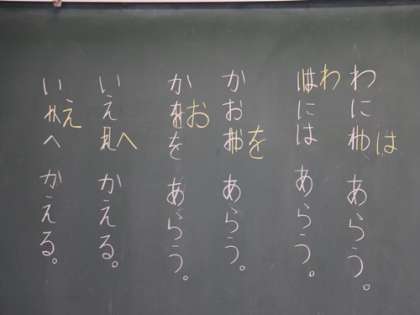 わには あらう。
わには あらう。
かおを あらう。
かおを あらう。
いえへ かえる。
いえへ かえる。